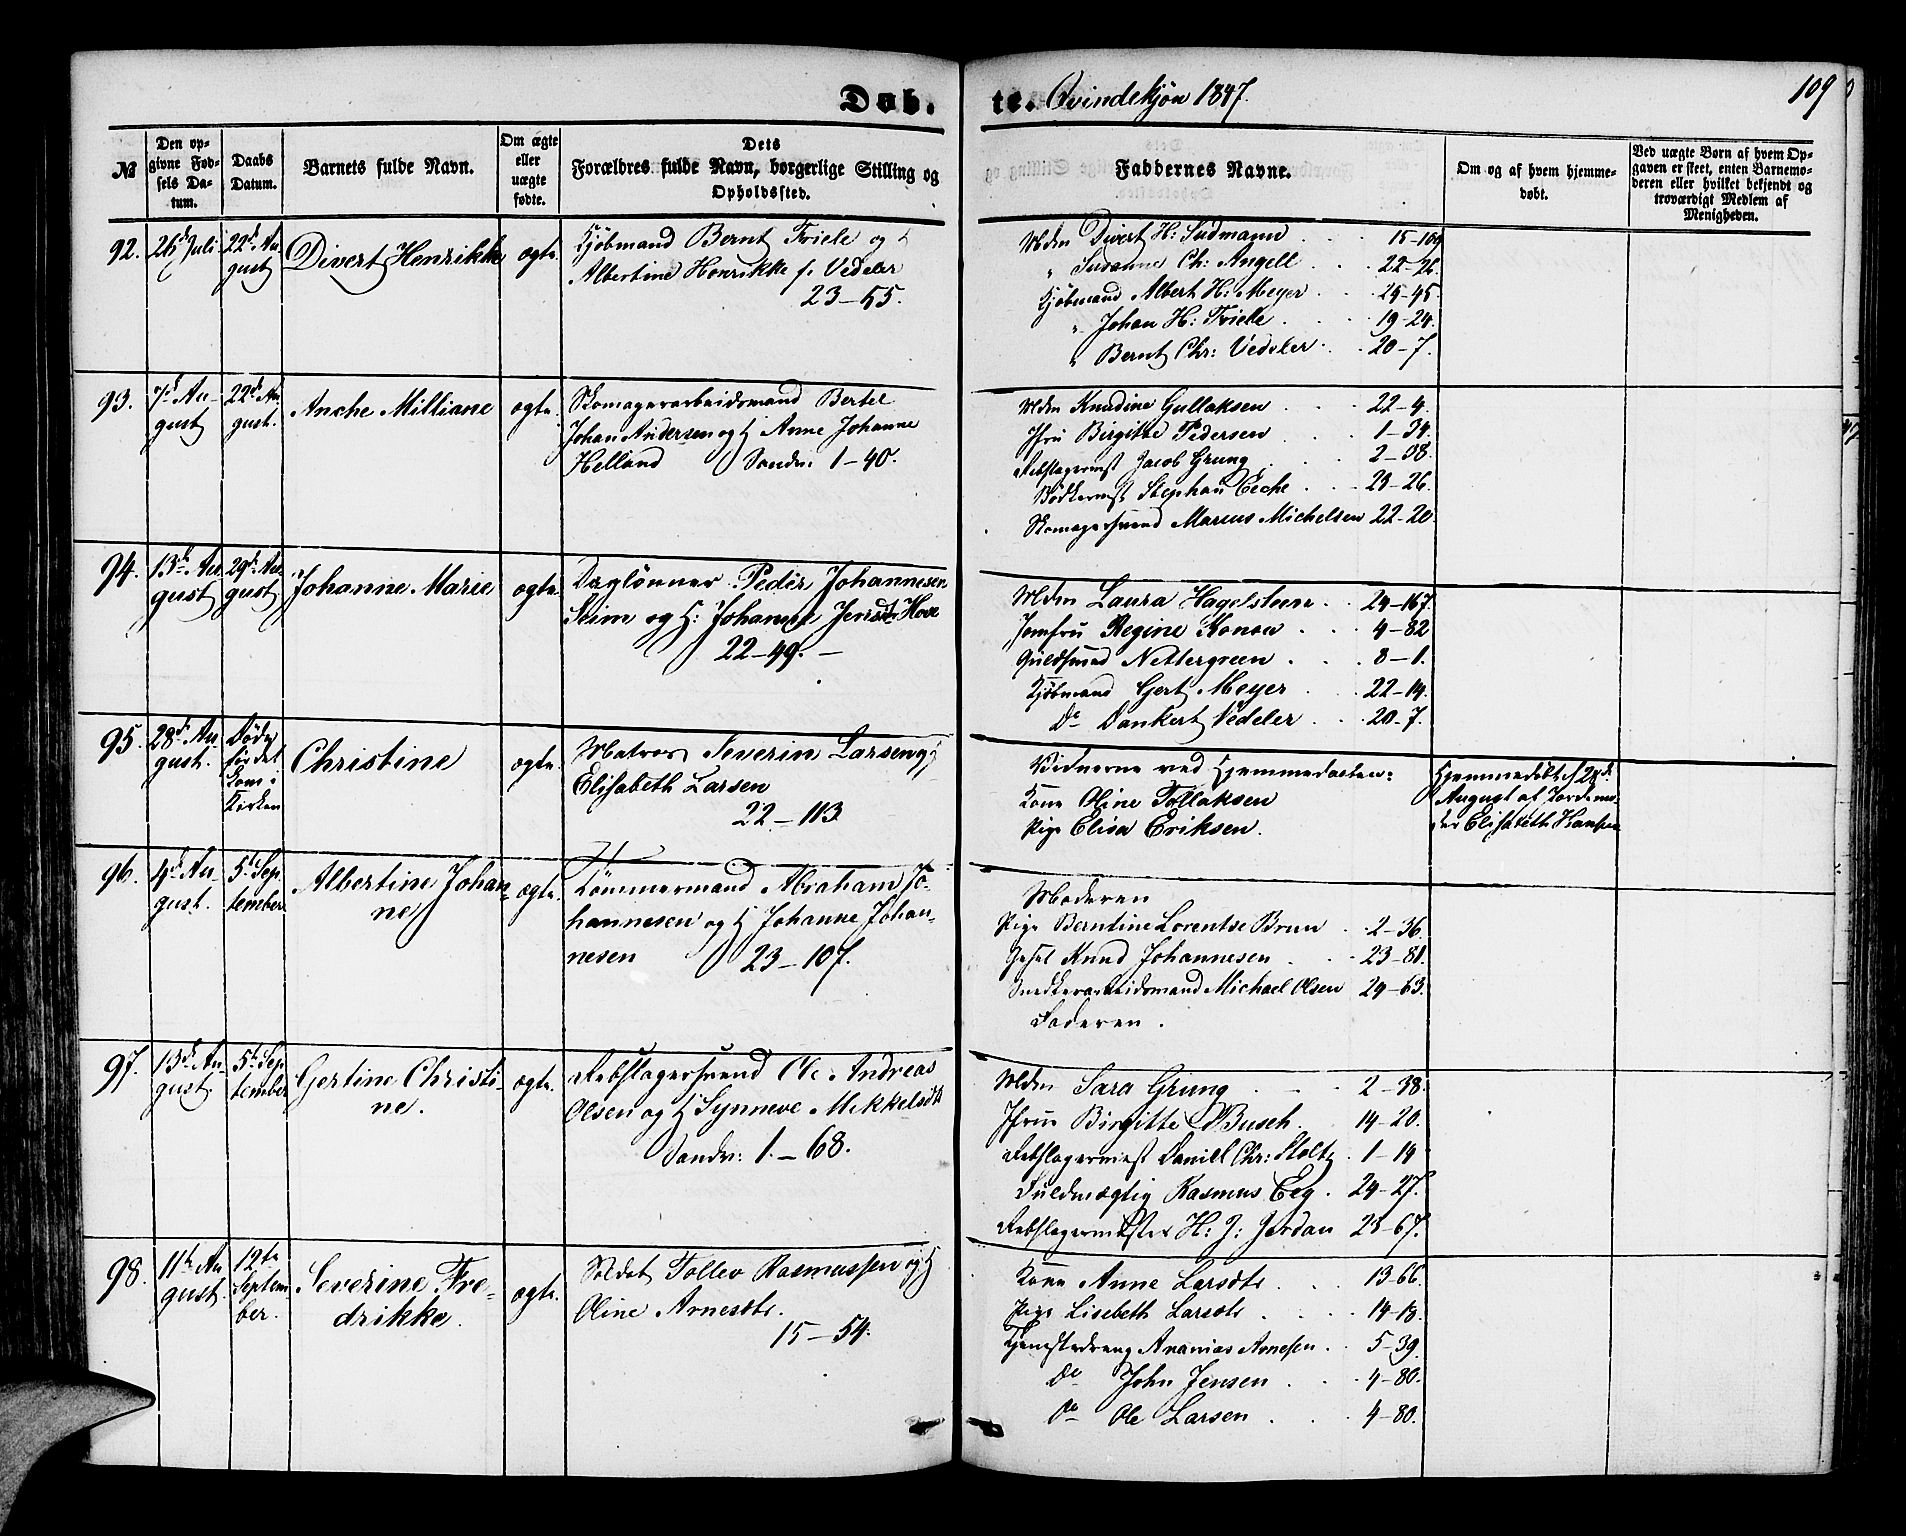 Døb. te. Qvindekjøn 1847. 109
№
Den opgivne Fødsels Datum.
Daabs Datum.
Barnets fulde Navn.
Om ægte eller uægte fødte.
Dets Forældres fulde Navn, borgerlige Stilling og Opholdssted.
Faddernes Navne.
Om og af hvem hjemmedøbt.
Ved uægte Børn af hvem Opgaven er skeet, enten Barnemoderen eller hvilket bekjendt og troværdigt Medlem af Menigheden.
92. 26d Juli 22d August Divert Henrikke ægte.
Kjøbmand Bernt Friele og H
Albertine Henrikke f. Vedeler
23–55.
Mdm Divert H: Sudmann 15–109
" Susanne Ch: Angell 22–26.
Kjøbmand Albert H: Meyer 24–45.
" Johan H: Friele 19–24.
" Bernt Chr: Vedeler 20–7.
93. 7d August 22d August. Anche Milliane ægte.
Skomagerarbeidsmand Bertel
Johan Andersen og H Anne Johanne
Helland Sandv: 1–40.
Mdm Knudine Gullaksen 22–4.
Jfru Birgitte Pedersen 1–34.
Rebslagermst Jacob Grung 2–38.
Bødkermst Stephan Eeche 23–26.
Skomagersvend Marius Michelsen 22–20.
94. 13de August 29de August Johanne Marie ægte.
Daglønner Peder Johannesen
Seim og H: Johanne Jensdt Hove
22–49. –
Mdm Laura Hagelsteen 24–167.
Jomfru Regine Konow 4–82
Guldsmed Nettergreen 8–1.
Kjøbmand Gert Meyer 22–14.
Do Dankert Vedeler 20–7.
95. 28de August. Døde før det kom i Kirken Christine ægte.
Matros Severin Larsen og H
Elisabeth Larsen
22–113.
Vidnerne ved Hjemmedaaben:
Kone Oline Tollaksen
Pige Elisa Eriksen.
Hjemmedøbt d 28de
August af Jordemo-
der Elisabeth Hansen
96. 4d August. 5te September Albertine Johanne ægte.
Tømmermand Abraham Jo-
hannesen og H Johanne Johan-
nesen 23–107.
Moderen
Pige Berntine Lorentse Brun 2–36.
Gesel Knud Johannesen 23–81.
Snedkerarbeidsmand Michael Olsen 24–63.
Faderen.
97. 13de August. 5te September Gertine Christine. ægte.
Rebslagersvend Ole Andreas
Olsen og H Synneve Mikkelsdt
Sandv: 1.–68.
Mdm Sara Grung 2–38.
Jfru Birgitte DBusch 14–20.
Rebslagermst Daniel Chr: Stoltz 1–14
Fuldmægtig Rasmus Eeg. 24–27.
Rebslagermester H: J: Jordan 23–67.
98. 11te August. 12te September. Severine Fredrikke. ægte.
Soldat Tollev Rasmussen og H
Oline Arnesdtr.
15–54.
Kone Anne Larsdtr 13–66.
Pige Lisebeth Larsdtr 14–13.
Tjenestedreng Ananias Arnesen 5–39.
Do John Jensen 4–80.
Do Ole Larsen 4–80.